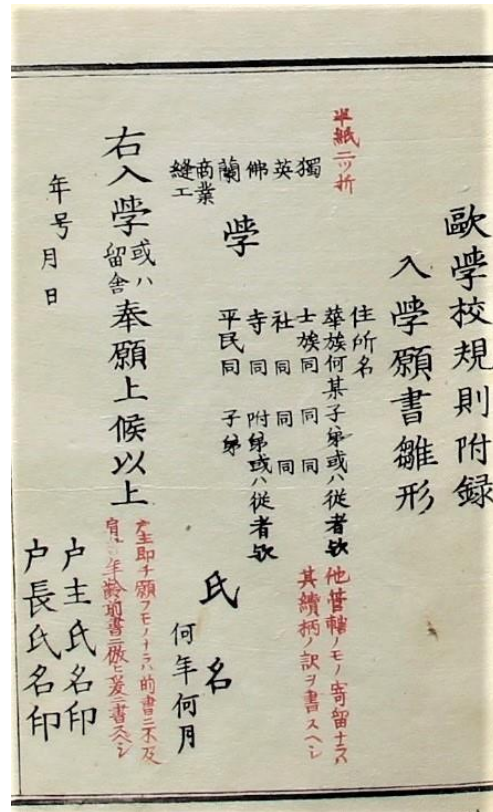 歐學校規則附録
入學願書雛形
半紙二ツ折
獨
英
佛
蘭
商業
縫工
學
住所名
華族何某子弟或ハ從者欤
士族同同同
社同同同
寺同附弟或ハ從者欤
平民同子弟
他管轄ノモノ寄留ナラハ
其續柄ノ訳ヲ書スヘシ
氏名
何年何月
右入學或ハ留舎奉願上候以上
戸主即チ願フモノナラハ前書ニ不及
年齢前書ニ倣ヒ爰ニ書スヘシ
年号月日
戸主氏名印
戸長氏名印